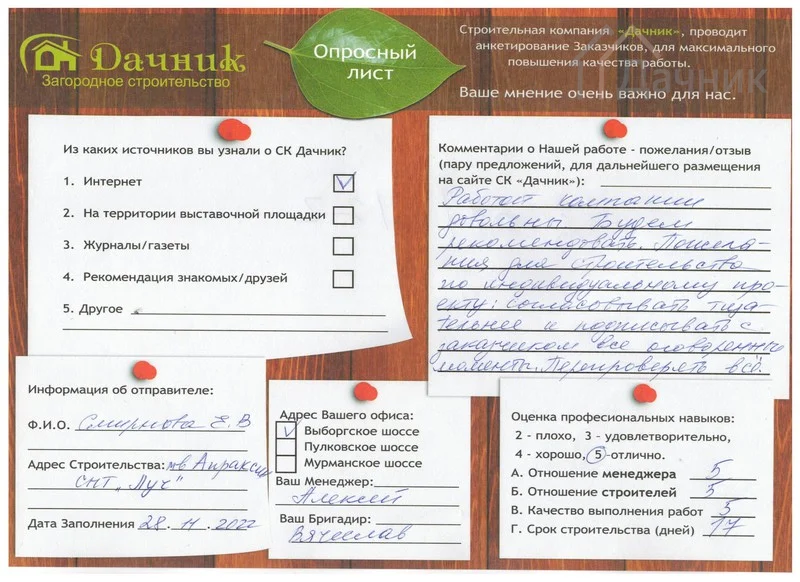 Дачник
Загородное строительство
Опросный
лист
Строительная компания «Дачник», проводит
анкетирование Заказчиков, для максимального
повышения качества работы.
Дачник
Ваше мнение очень важно для нас.
Из каких источников вы узнали о СК Дачник?
1. Интернет
2. На территории выставочной площадки
3. Журналы/газеты
4. Рекомендация знакомых/друзей
5. Другое
Комментарии о Нашей работе - пожелания/отзыв
(пару предложений, для дальнейшего размещения
на сайте СК «Дачник»):
Работой компании
довольны. Будем
рекомендовать. Пожела-
ния для строительства
по индивидуальному про-
екту: согласовывать тща-
тельнее и подписывать с
заказчиком все оговоренные
моменты. Перепроверять всё.
Информация об отправителе:
Ф.И.О. Смирнова Е.В
Адрес Строительства: Апраксин
СНТ „Луч"
Дата Заполнения 28.11.2022
Адрес Вашего офиса:
Выборгское шоссе
Пулковское шоссе
Мурманское шоссе
Ваш Менеджер:
Алексей
Ваш Бригадир:
Вячеслав
Оценка професиональных навыков:
2 - плохо, 3 - удовлетворительно,
4 - хорошо, 5 -отлично.
А. Отношение менеджера 5
Б. Отношение строителей 5
В. Качество выполнения работ 5
Г. Срок строительства (дней) 17